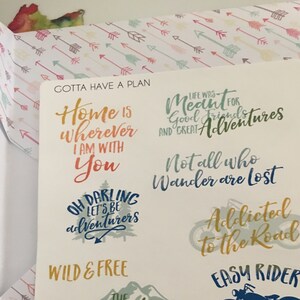 GOTTA HAVE A PLAN
Home is
wherever
I AM WITH
You
LIFE WAS
Meant FOR
Good Friends
AND GREAT Adventures
OH DARLING
LET'S BE
adventurers
Not all who
Wander are Lost
Addicted
to the Road
WILD & FREE
EASY RIDER
THE